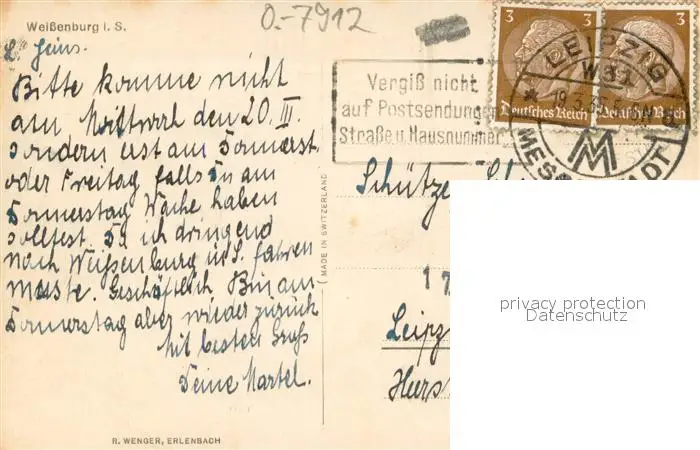 Weißenburg i. S.
O.-7912
L. Heins.
Bitte komme nicht
am Mittwoch den 20. III.
sondern erst am Donnerst.
oder Freitag falls Du am
Donnerstag Wache haben
solltest. Da ich dringend
nach Weißenburg in S. fahren
musste. Geschäftlich. Bin am
Donnerstag aber wieder zurück
Mit besten Gruß
Deine Martel.
R. WENGER, ERLENBACH
( MADE IN SWITZERLAND
Vergiß nicht
auf Postsendungen
Straße u. Hausnummer
3 3
Deutsches Reich Deutsches Reich
LEIPZIG
W31
MESSESTADT
M
Schütze
17
Leipz
privacy protection
Datenschutz